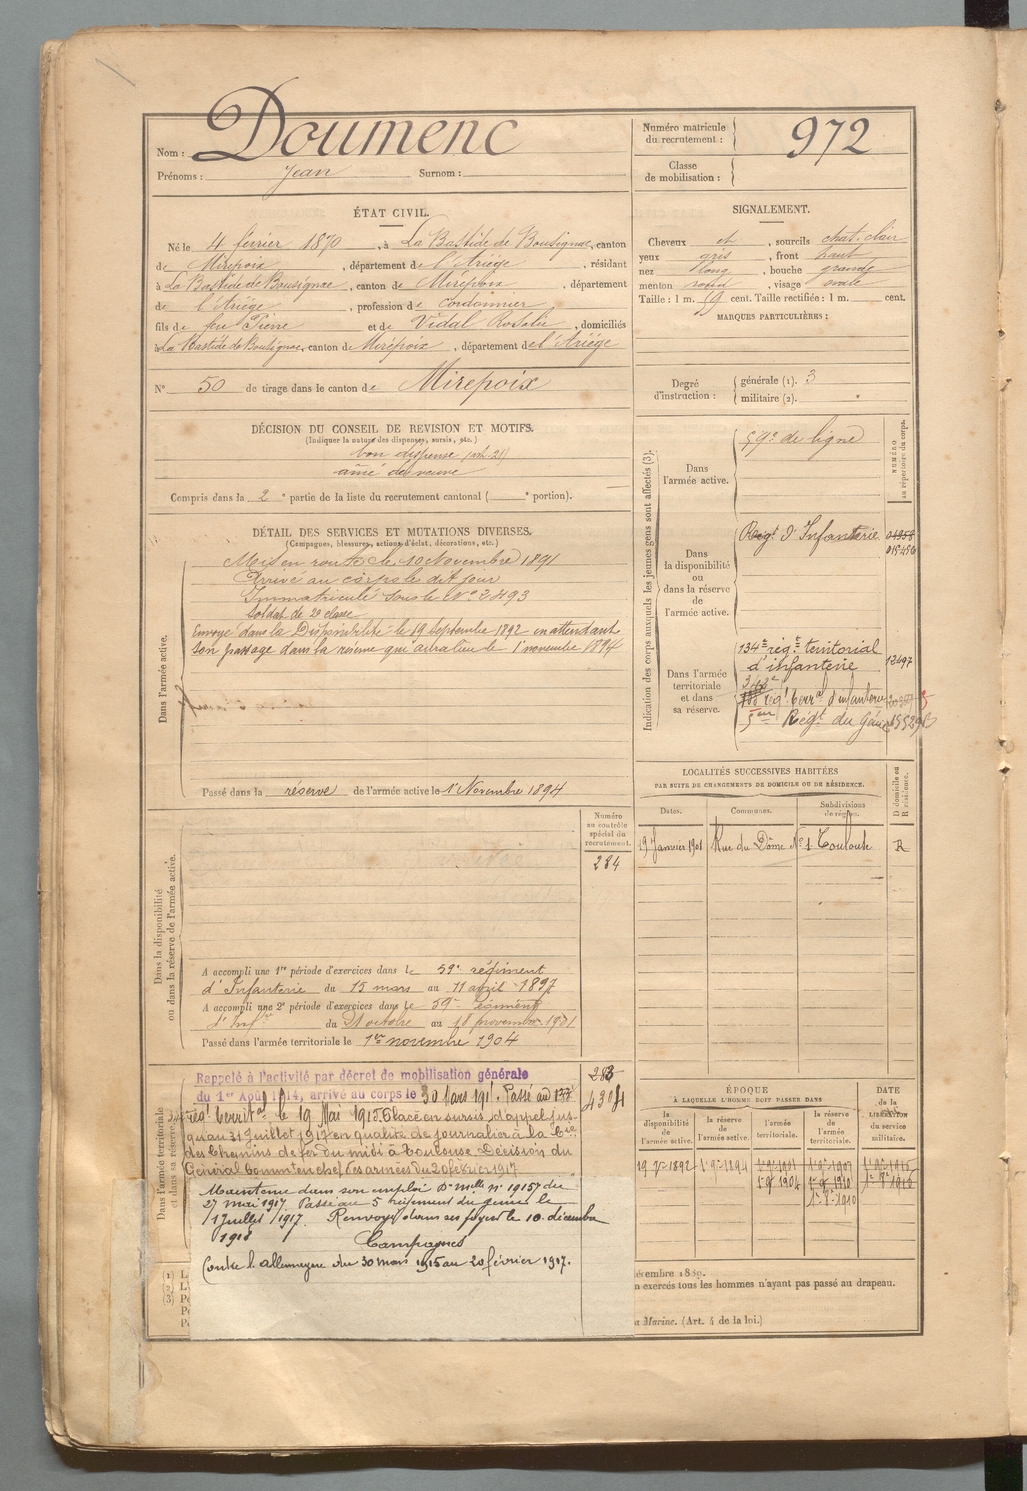 Nom : Doumenc
Prénoms : Jean Surnom :
Numéro matricule du recrutement : 972
Classe de mobilisation :
ÉTAT CIVIL.
Né le 4 février 1870, à La Bastide de Bousignac, canton
de Mirepoix, département de l'Ariège, résidant
à La Bastide de Bousignac, canton de Mirepoix, département
de l'Ariège, profession de Cordonnier
fils de feu Pierre et de Vidal Rosalie, domiciliés
à La Bastide de Bousignac, canton de Mirepoix, département de l'Ariège
N° 50 de tirage dans le canton de Mirepoix
SIGNALEMENT.
Cheveux et, sourcils chat. clair
yeux gris, front haut
nez long, bouche grande
menton rond, visage ovale
Taille : 1 m. 59 cent. Taille rectifiée : 1 m. cent.
MARQUES PARTICULIÈRES :
Degré d'instruction : générale (1). 3
militaire (2).
DÉCISION DU CONSEIL DE REVISION ET MOTIFS.
(Indiquer la nature des dispenses, sursis, etc.)
bon dispense (art. 21)
aîné de veuve
Compris dans la 2e partie de la liste du recrutement cantonal ( e portion).
DÉTAIL DES SERVICES ET MUTATIONS DIVERSES.
(Campagnes, blessures, actions d'éclat, décorations, etc.)
Dans l'armée active.
Mis en route le 10 Novembre 1891
Arrivé au corps le dit jour
Immatriculé sous le N° 2493
Soldat de 2e classe
Envoyé dans la Disponibilité le 19 Septembre 1892 en attendant
son passage dans la réserve qui aura lieu le 1 novembre 1894
Passé dans la réserve de l'armée active le 1 Novembre 1894
Indication des corps auxquels les jeunes gens sont affectés (3).
NUMÉRO au répertoire du corps.
Dans l'armée active.
59e de ligne
Dans la disponibilité ou dans la réserve de l'armée active.
Régt d'Infanterie
Dans l'armée territoriale et dans sa réserve.
134e régt territorial
d'infanterie 12497
régt terral d'infanterie
5eme Régt du Génie
LOCALITÉS SUCCESSIVES HABITÉES
PAR SUITE DE CHANGEMENTS DE DOMICILE OU DE RÉSIDENCE.
Dates. Communes. Subdivisions de région. D domicile ou R résidence.
19 Janvier 1901 Rue du Dôme N° 1 Toulouse R
Dans la disponibilité ou dans la réserve de l'armée active.
Numéro au contrôle spécial du recrutement.
284
A accompli une 1re période d'exercices dans le 59e régiment
d'Infanterie du 15 mars au 11 avril 1897
A accompli une 2e période d'exercices dans le 59e régiment
d'Infie du 21 octobre au 18 novembre 1901
Passé dans l'armée territoriale le 1er novembre 1904
Dans l'armée territoriale et dans sa réserve.
4304
Rappelé à l'activité par décret de mobilisation générale
du 1er Août 1914, arrivé au corps le 30 Mars 191. Passé au
régt territal le 19 Mai 1915. Placé en sursis d'appel jus-
qu'au 31 Juillet 1917 en qualité de journalier à la Cie
des Chemins de fer du midi à Toulouse. Décision du
Général Commt en chef les armées du 20 février 1917
Maintenu dans son emploi Don Melle n° 19157 du
27 mai 1917 Passé au 5 régiment du génie le
1 Juillet 1917. Renvoyé dans ses foyers le 10 décembre
1918
Campagnes
Contre l'allemagne du 30 mars 1915 au 20 février 1917.
ÉPOQUE
À LAQUELLE L'HOMME DOIT PASSER DANS
DATE de la LIBÉRATION du service militaire.
la disponibilité de l'armée active. la réserve de l'armée active. l'armée territoriale. la réserve de l'armée territoriale.
19 7e 1892 1 9e 1894 1 9e 1901 1 9e 1907 1 9e 1916
1 9e 1904 1 9e 1910
embre 1889.
n exercés tous les hommes n'ayant pas passé au drapeau.
a Marine. (Art. 4 de la loi.)